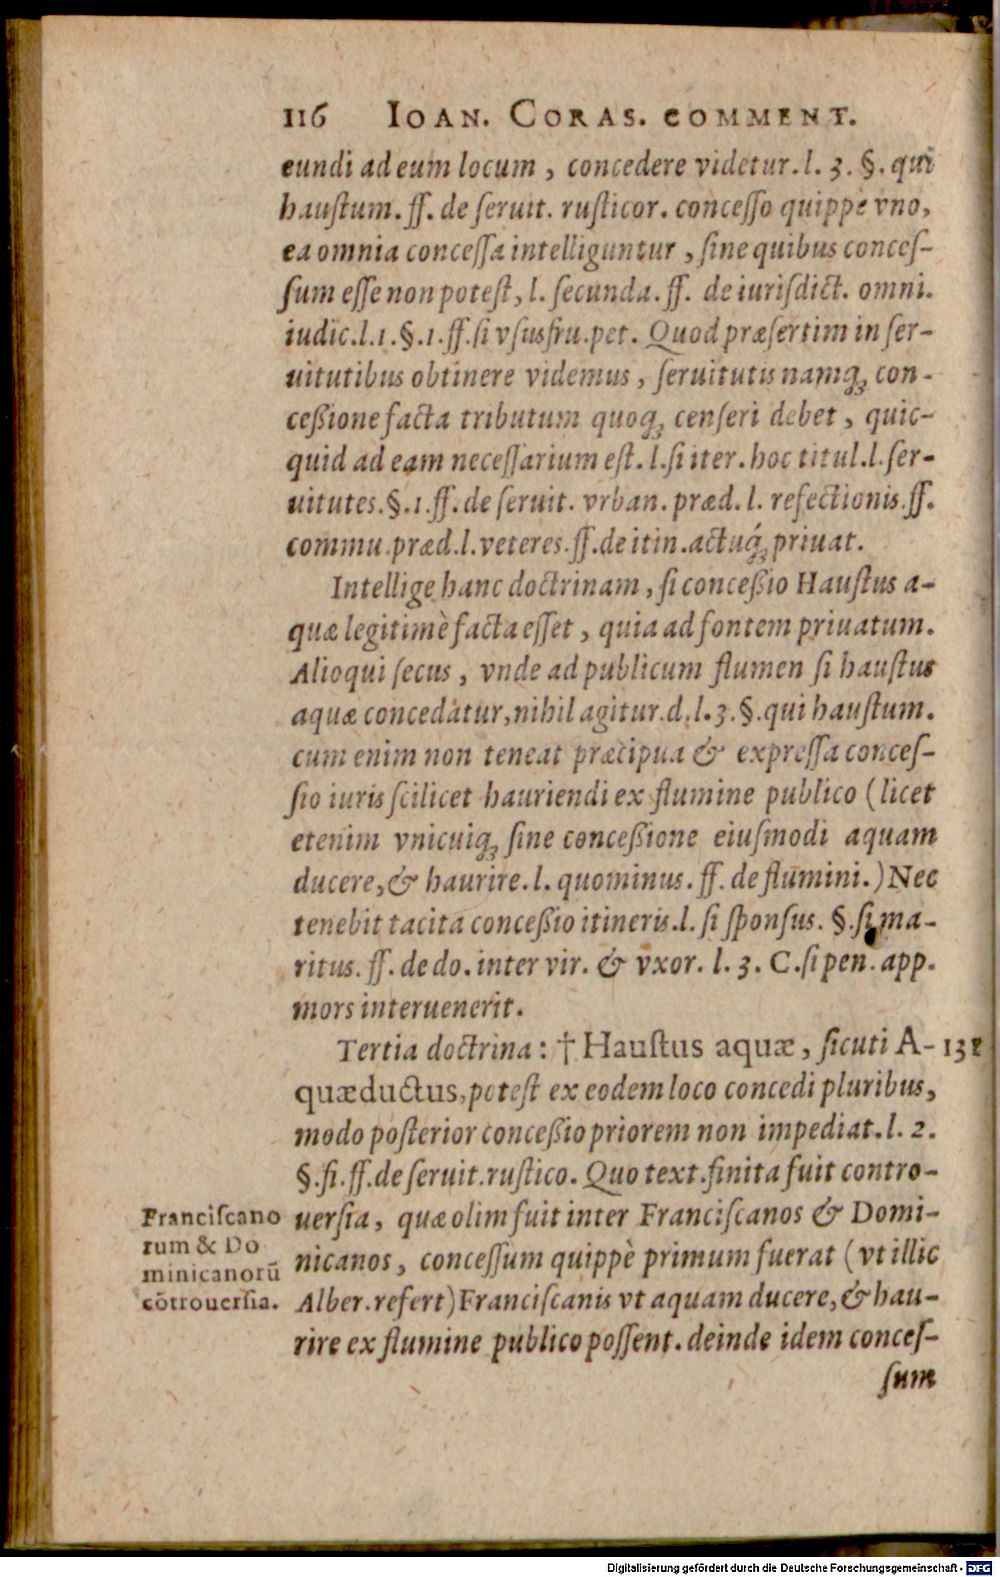 116 IOAN. CORAS. COMMENT.
eundi ad eum locum, concedere videtur. l. 3. §. qui
haustum. ff. de seruit. rusticor. concesso quippe vno,
ea omnia concessa intelliguntur, sine quibus conces-
sum esse non potest, l. secunda. ff. de iurisdict. omni.
iudic. l. 1. §. 1. ff. si vsusfru. pet. Quod præsertim in ser-
uitutibus obtinere videmus, seruitutis namq; con-
ceßione facta tributum quoq; censeri debet, quic-
quid ad eam necessarium est. l. si iter. hoc titul. l. ser-
uitutes. §. 1. ff. de seruit. vrban. præd. l. refectionis. ff.
commu. præd. l. veteres. ff. de itin. actuq́; priuat.
Intellige hanc doctrinam, si conceßio Haustus a-
quæ legitimè facta esset, quia ad fontem priuatum.
Alioqui secus, vnde ad publicum flumen si haustus
aquæ concedatur, nihil agitur. d. l. 3. §. qui haustum.
cum enim non teneat præcipua & expressa conces-
sio iuris scilicet hauriendi ex flumine publico (licet
etenim vnicuiq; sine conceßione eiusmodi aquam
ducere, & haurire. l. quominus. ff. de flumini.) Nec
tenebit tacita conceßio itineris. l. si sponsus. §. si ma-
ritus. ff. de do. inter vir. & vxor. l. 3. C. si pen. app.
mors interuenerit.
Tertia doctrina: † Haustus aquæ, sicuti A- 131
quæductus, potest ex eodem loco concedi pluribus,
modo posterior conceßio priorem non impediat. l. 2.
§. fi. ff. de seruit. rustico. Quo text. finita fuit contro-
uersia, quæ olim fuit inter Franciscanos & Domi-
nicanos, concessum quippè primum fuerat (vt illic
Alber. refert) Franciscanis vt aquam ducere, & hau-
rire ex flumine publico possent. deinde idem conces-
sum
Franciscano
rum & Do
minicanorū
cōtrouersia.
Digitalisierung gefördert durch die Deutsche Forschungsgemeinschaft - DFG